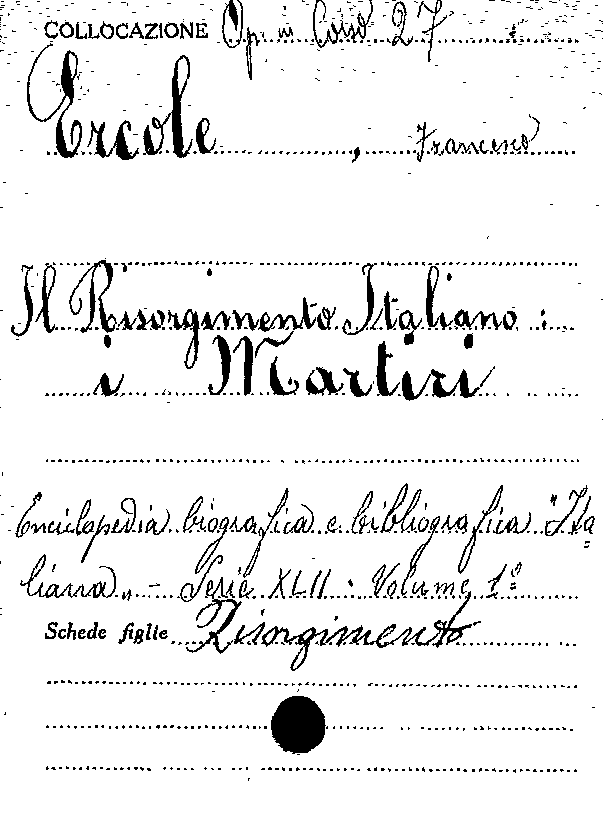 COLLOCAZIONE Op. in Cons 27
Ercole, Francesco
Il Risorgimento Italiano :
i Martiri
Enciclopedia biografica e bibliografica "Ita=
liana" - Serie XLII. Volume 1º
Schede figlie Risorgimento